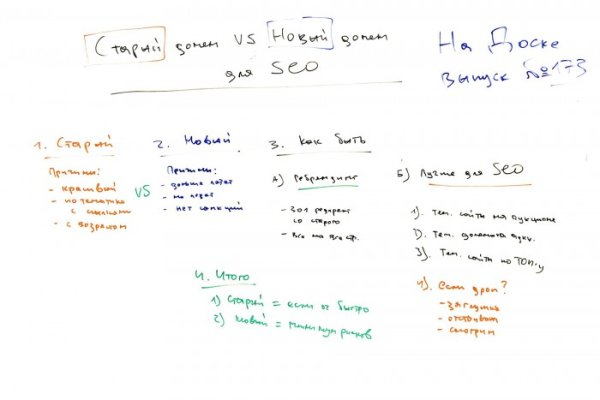 Старый домен VS Новый домен
для SEO
На Доске
выпуск №173
1. Старый
Причины:
- красивый
- по тематике
с ссылками
- с возрастом
VS
2. Новый
Причины:
- дольше
- нет санкций
3. Как быть
А) Ребрендинг
- 301 редирект
со старого
- Все на все стр.
Б) Лучше для SEO
1). Тем. сайты на аукционе
2). Тем. домены
3). Тем. сайты по ТОП-у
4). Если дроп?
- загнулись
- отстаивают
- смотрим
4. Итого
1) Старый = если оч быстро
2) Новый = минимум рисков